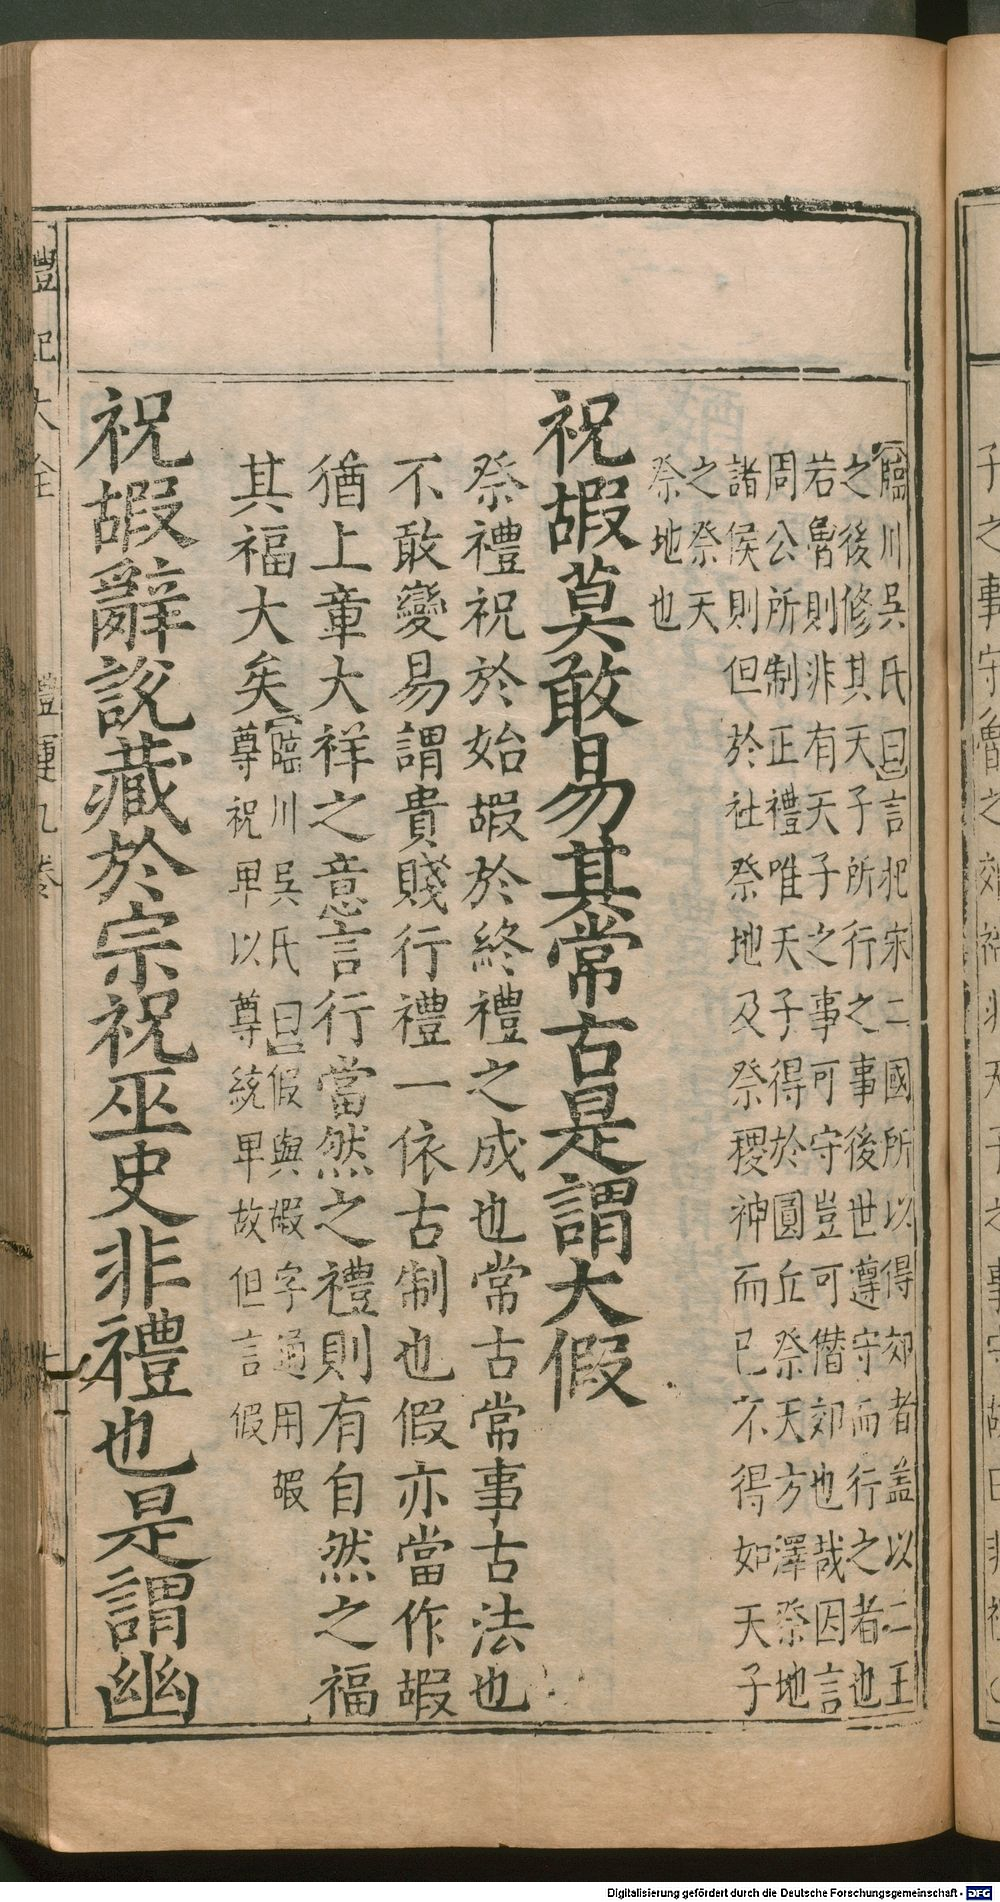 臨川吳氏曰言杞宋二國所以得郊者盖以二王
之後修其天子所行之事後世遵守而行之者也
若魯則非有天子之事可守豈可僭郊也哉因言
周公所制正禮唯天子得於圓丘祭天方澤祭地
諸侯則但於社祭地及祭稷神而已不得如天子
之祭天
祭地也
祝嘏莫敢易其常古是謂大假
祭禮祝於始嘏於終禮之成也常古常事古法也
不敢變易謂貴賤行禮一依古制也假亦當作嘏
猶上章大祥之意言行當然之禮則有自然之福
其福大矣
臨川吳氏曰假與嘏字通用嘏
尊祝卑以尊統卑故但言假
祝嘏辭說藏於宗祝巫史非禮也是謂幽
禮記大全
禮運九卷
Digitalisierung gefördert durch die Deutsche Forschungsgemeinschaft - DFG